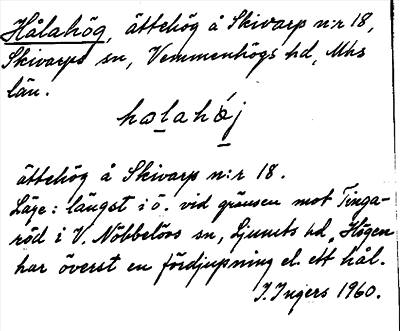 Hålahög, ättehög å Skivarp n:r 18,
Skivarps sn, Vemmenhögs hd, Mhs
län.
hålahǿj
ättehög å Skivarp n:r 18.
Läge: längst i ö. vid gränsen mot Tinga-
röd i V. Nöbbelövs sn, Ljunits hd. Högen
har överst en fördjupning el. ett hål.
I. Ingers 1960.